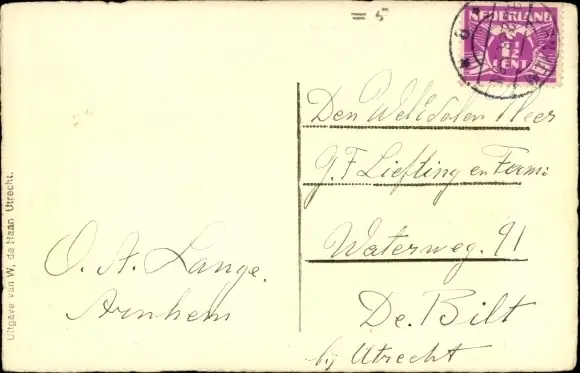 = 5
NEDERLAND
1½
CENT
Den WelEdelen Heer
G. F. Liefting en Fam:
Waterweg. 91
De. Bilt
bij Utrecht
O. A. Lange.
Arnhem
Uitgave van W. de Haan Utrecht.